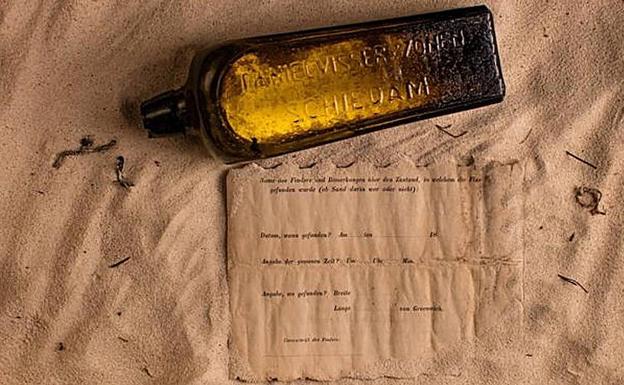 DANIEL VISSER & ZONEN
SCHIEDAM
Name des Finders und Bemerkungen über den Zustand, in welchem die
gefunden wurde (ob Sand darin war oder nicht):
Datum, wann gefunden? Am ten
Angabe der genauen Zeit? Um Uhr Min.
Angabe, wo gefunden? Breite
Länge von Greenwich.
Unterschrift des Finders: